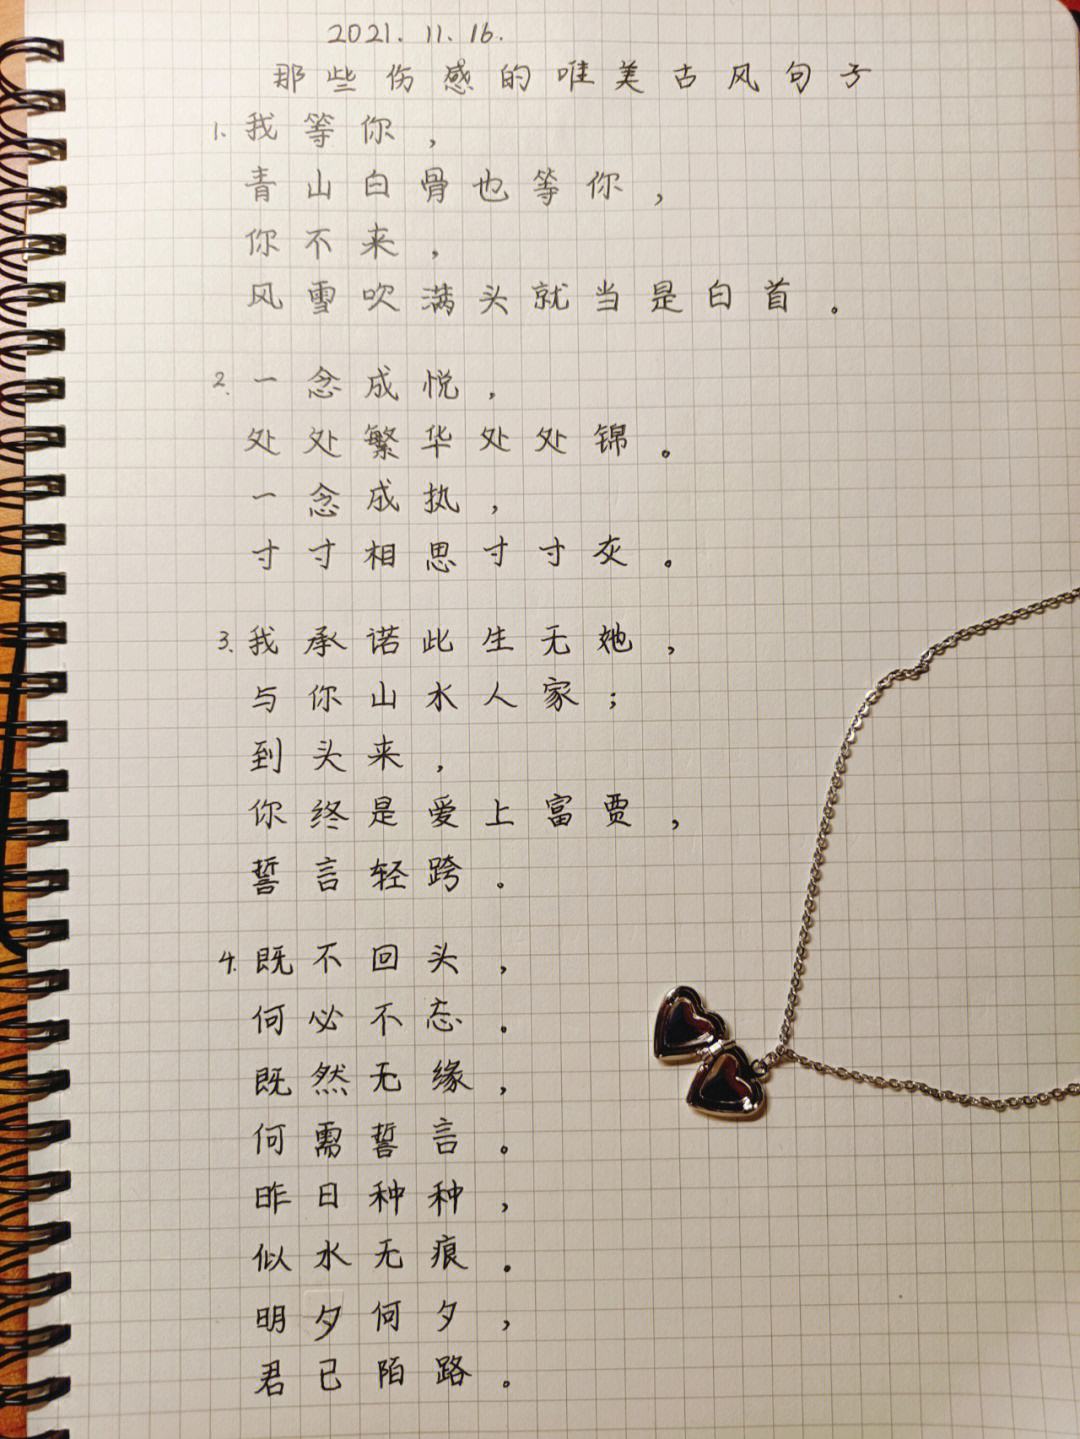 2021.11.16.
那些伤感的唯美古风句子
1.我等你，
青山白骨也等你，
你不来，
风雪吹满头就当是白首。
2.一念成悦，
处处繁华处处锦。
一念成执，
寸寸相思寸寸灰。
3.我承诺此生无她，
与你山水人家；
到头来，
你终是爱上富贾，
誓言轻跨.
4.既不回头，
何必不忘.
既然无缘，
何需誓言。
昨日种种，
似水无痕.
明夕何夕，
君已陌路。